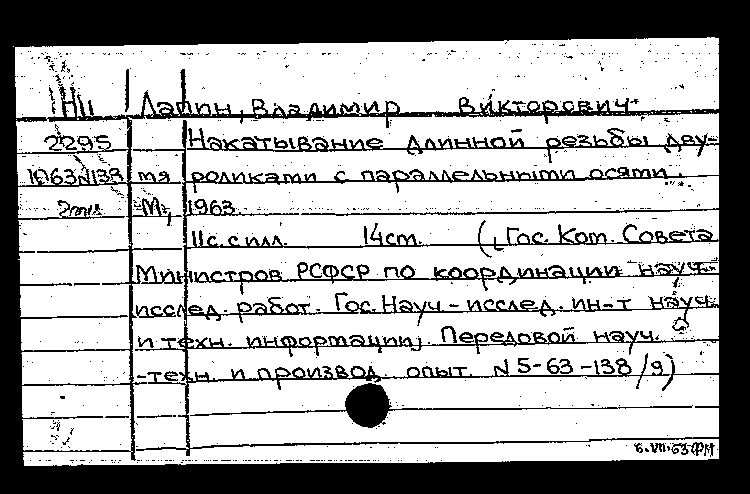 НИ Лапин, Владимир Викторович.
2295 Накатывание длинной резьбы дву-
1963N138 мя роликами с параллельными осями.
М, 1963
11с. с илл. 14cm. (Гос. Ком. Совета
Министров РСФСР по координации науч.-
исслед. работ. Гос. Науч.-исслед. ин-т науч.
и техн. информации; Передовой науч.
-техн. и производ. опыт. N 5-63-138/9)
6.VII.63